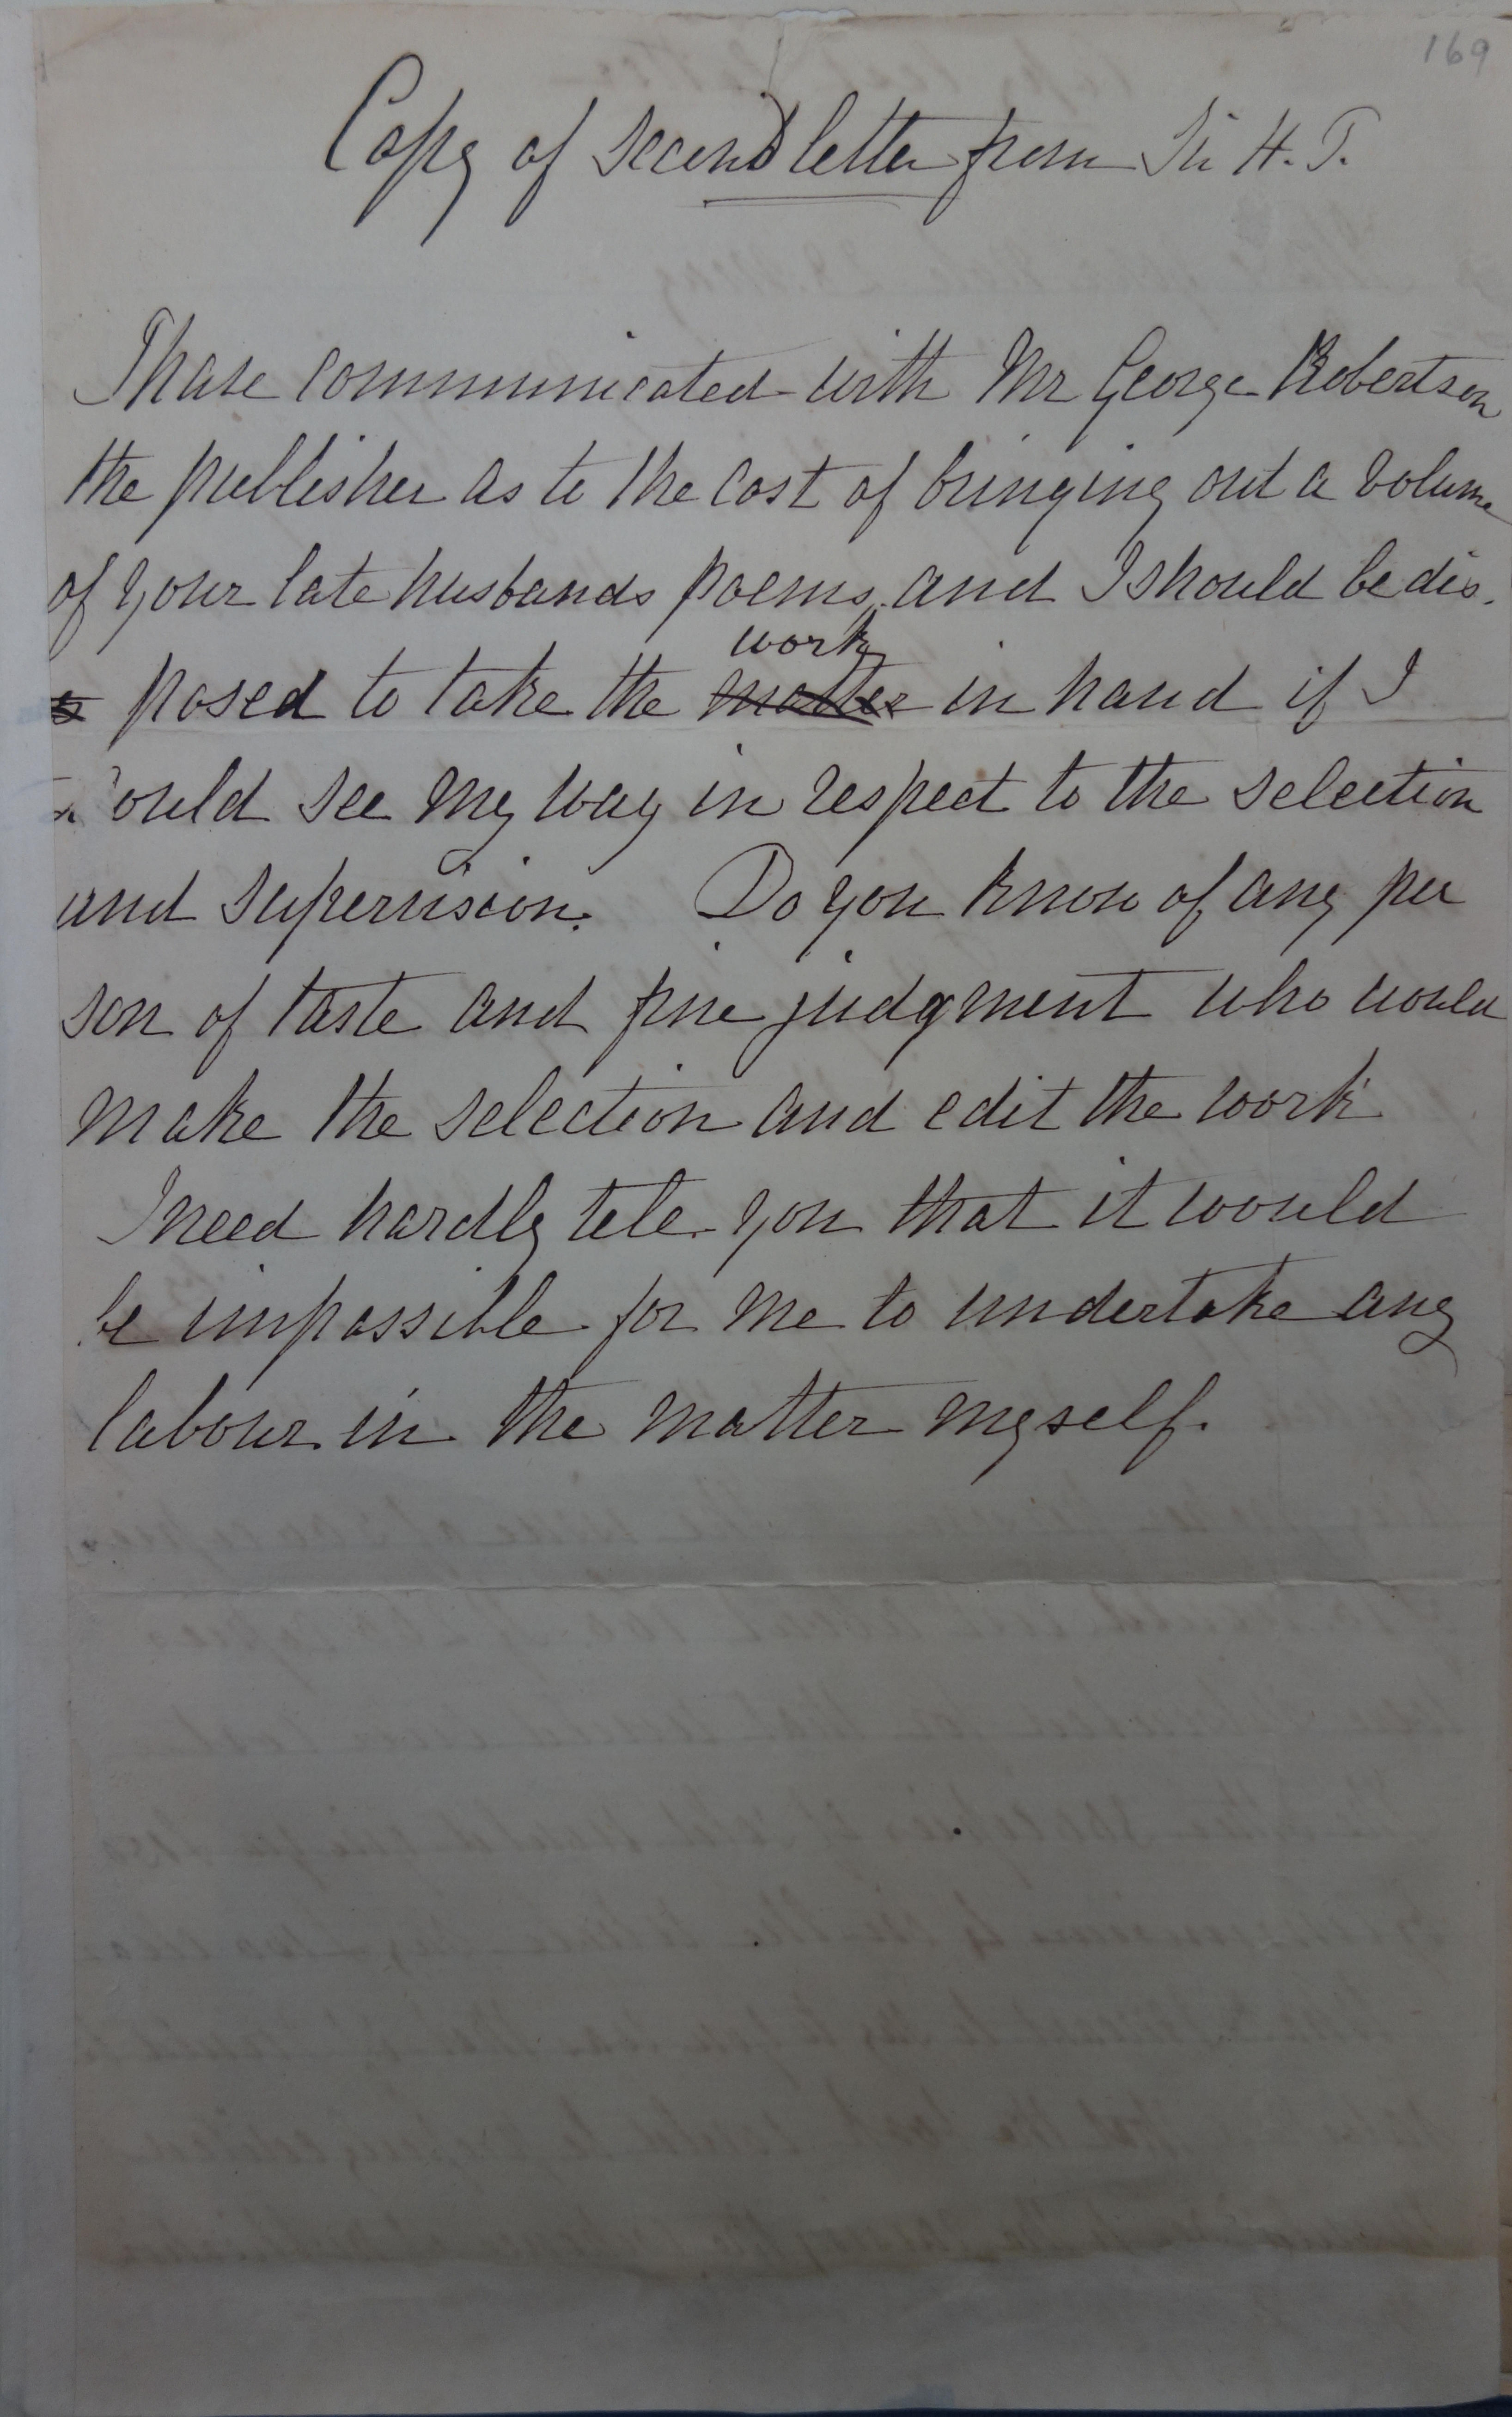 169
Copy of second letter from Sir H. P.
I have communicated with Mr George Robertson
the publisher as to the cost of bringing out a volume
of your late husbands poems, and I should be dis.
work
posed to take the matter in hand if I
could see my way in respect to the selection
and supervision. Do you know of any per
son of taste and fine judgment who would
make the selection and edit the work
I need hardly tele you that it would
be impossible for me to undertake any
labour in the matter myself.